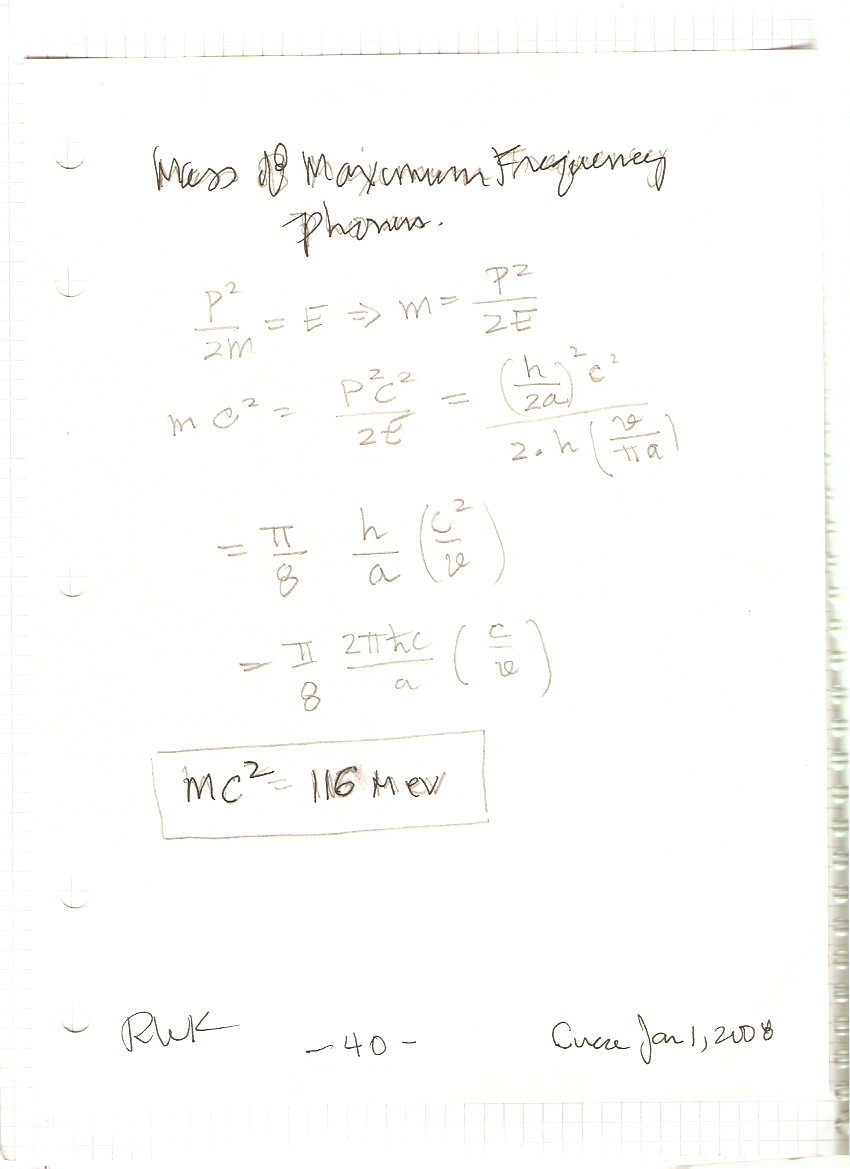 Mass of Maximum Frequency
Phonons.
P²/2m = E ⇒ m = P²/2E
mc² = P²c²/2E = (h/2a)²c² / 2·h(v/πa)
= π/8 h/a (c²/v)
= π/8 2πħc/a (c/v)
mc² = 116 Mev
RWK
-40-
Jan 1, 2008